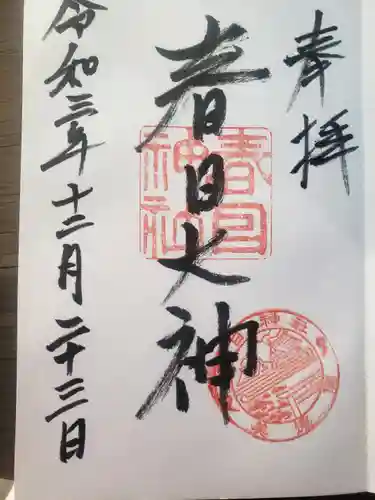 奉拝
春日大神
令和三年十二月二十三日
春日神社